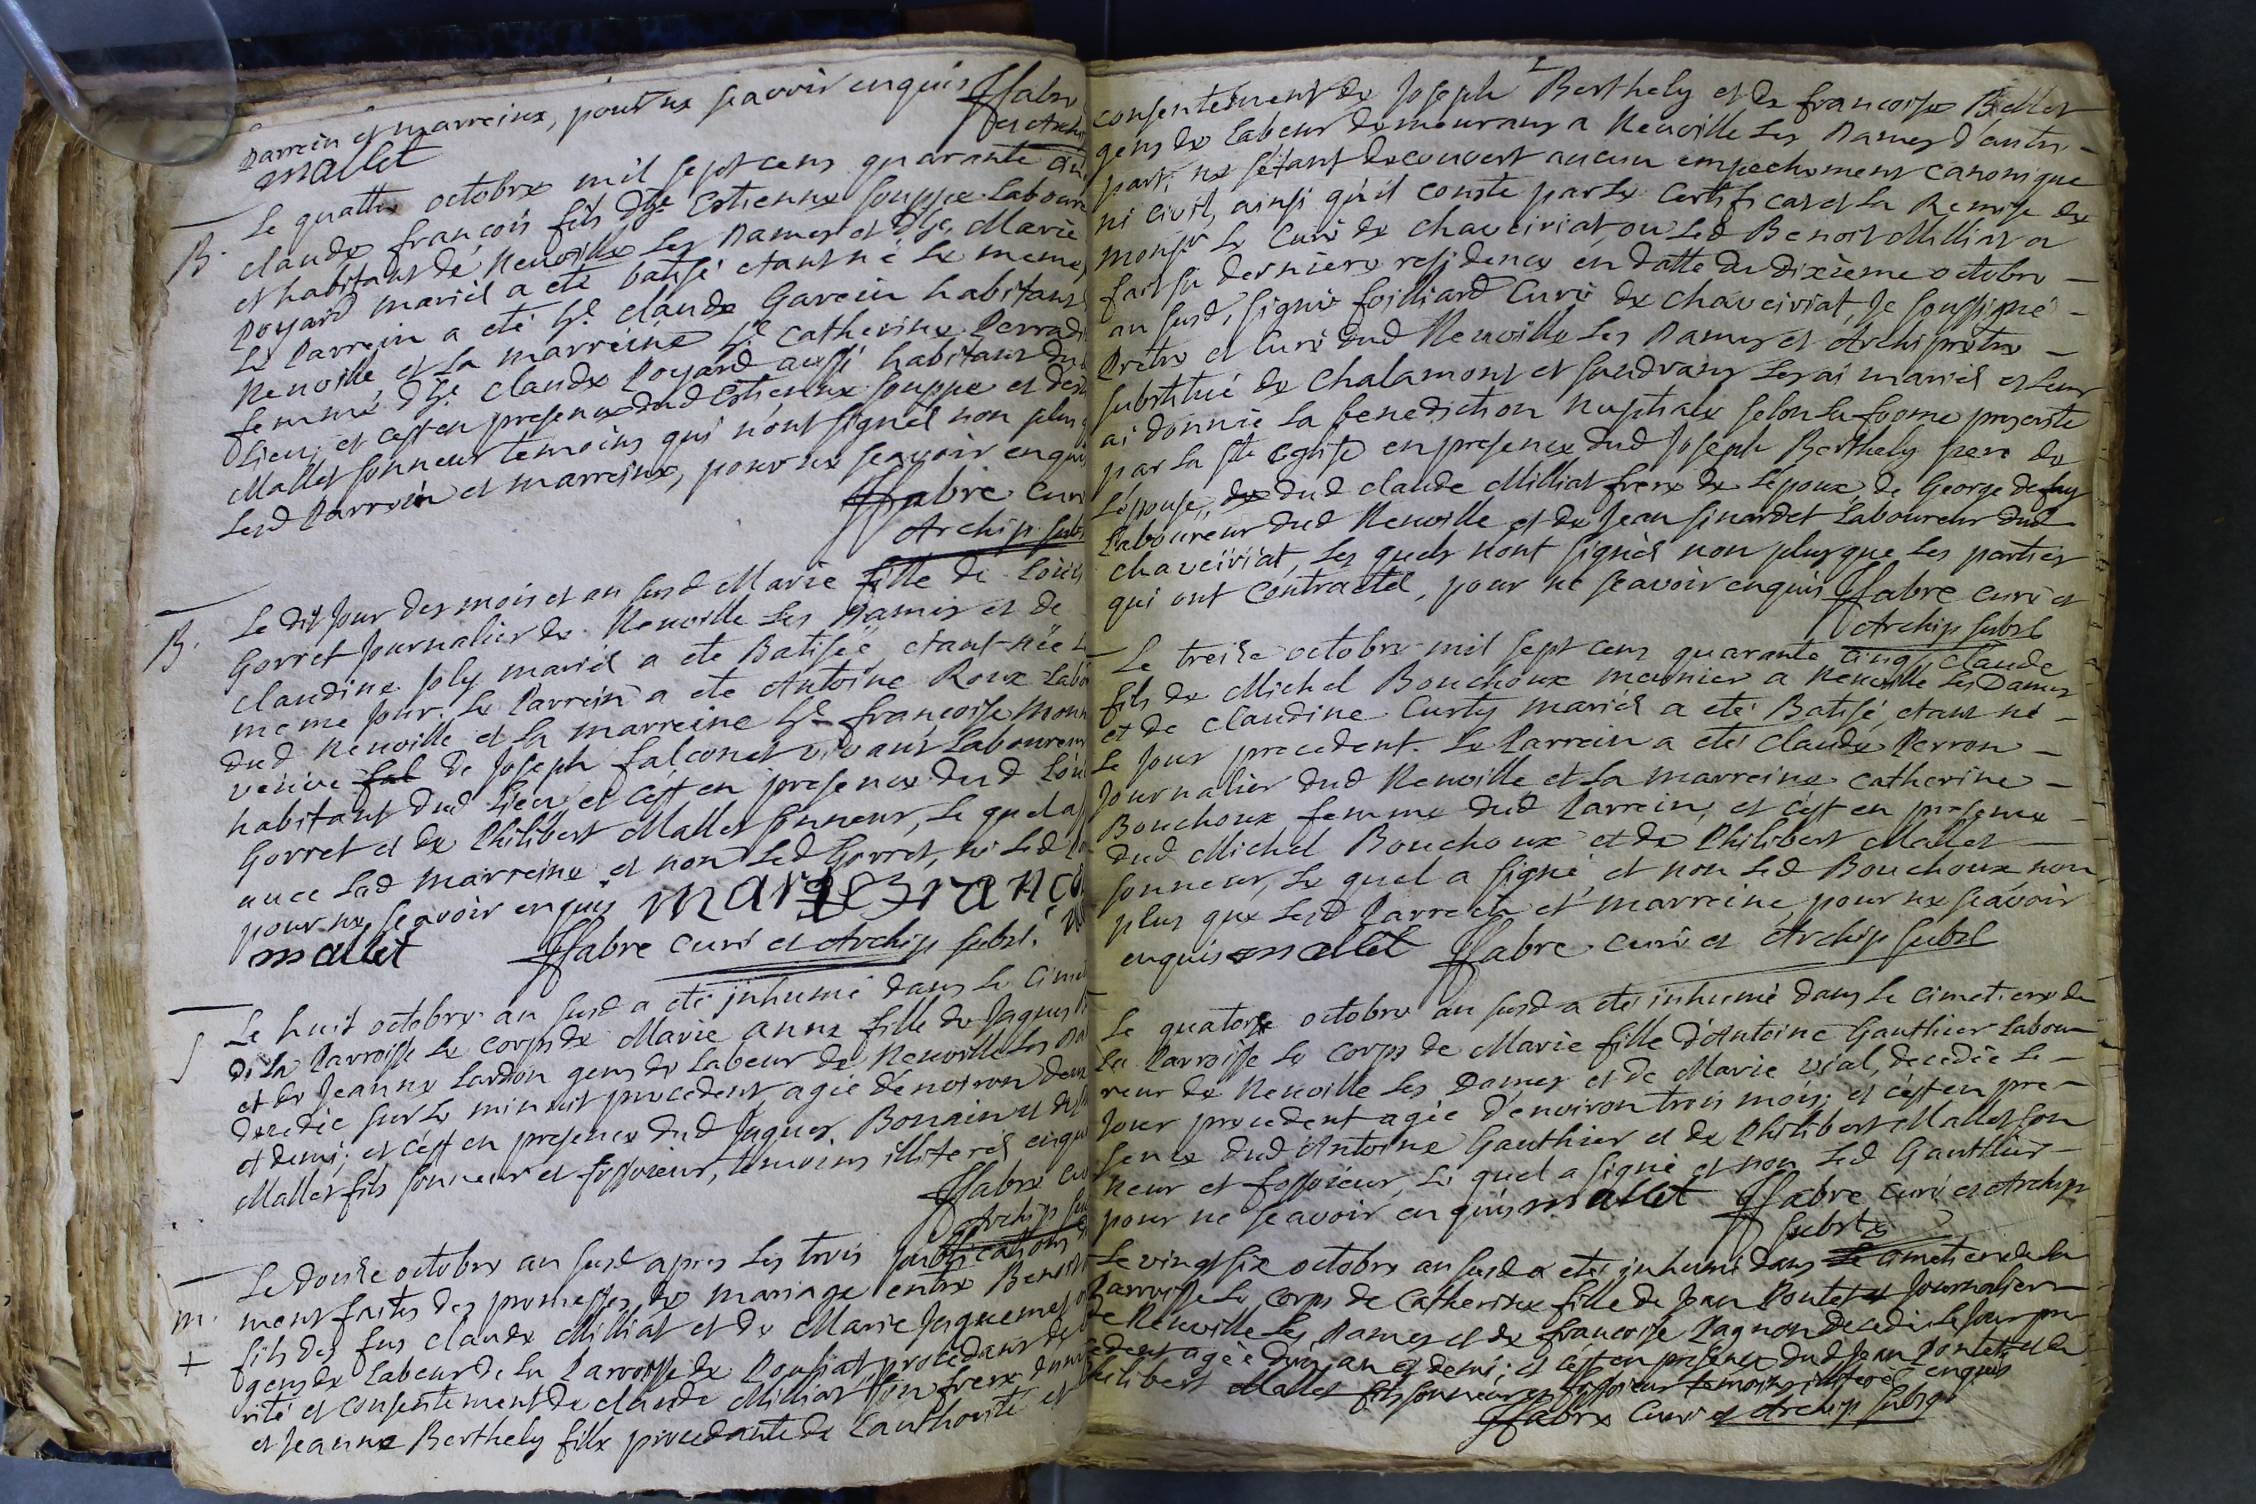 Parrein et marreine, pour ne sçavoir enquis ffabre
mallet
et Archi
B.
Le quatre octobre mil sept cens quarante cin
claude francois fils d'hle Estienne souppe Laboure
et habitant de Neuville Les Dames et d'hle Marie
Poyard mariés a eté batisé etant né le meme
Le Parrein a eté hle claude Garein habitant
Neuville et la marreine hle Catherine Perrad
femme d'hle claude Poyard aussi habitant dud
Lieu, et c'est en presence dud Estienne souppe et de
Mallet sonneur temoins qui n'ont signés non plus q
Lesd Parrein et marreine, pour ne sçavoir enquis
ffabre curé
Archip subst
B.
Le dit jour des mois et an susd Marie fille de Loüis
Gorret journalier de Neuville Les Dames et de
Claudine joly mariés a eté Batisée, etant née L
meme jour. Le Parrein a eté Antoine Roux Labo
dud Neuville et la marreine hle francoise Monn
veüve fal de joseph falconet vivant Laboureur
habitant dud Lieu, et c'est en presence dud Loüis
Gorret et de Philibert Mallet sonneur, Le quel a s
avec Lad marreine et non Led Gorret, ni Led P
pour ne sçavoir enquis marie franco
mallet ffabre curé et Archip subst.
S
Le huit octobre an susd a eté inhumé dans Le cimet
de La Parroisse Le corps de Marie anne fille de Jaques B
et de Jeanne Lardon gens de Labeur de Neuville Les Da
decedée sur Le minuit precedent, agée d'environ deux
et demi; et c'est en presence dud Jaques Bonain et de P
Mallet fils sonneur et fossoieur, temoins illiterés enquis
ffabre cu
Archip su
m.
+
Le douse octobre an susd apres Les trois publications d
ment faites des promesses de mariage entre Benoit
fils des fus claude Milliat et de Marie Jaquemet
gens de Labeur de La Parroisse de Pouliat, procedant de
rité et consentement de claude Milliat son frere d'une
et Jeanne Berthely fille procedante de L'authorité et
consentement de Joseph Berthely et de francoise Bellet
gens de Labeur demeurans a Neuville Les Dames d'autre
part, ne s'étant decouvert aucun empechement canonique
ni civil, ainsi qu'il conste par Le certificat et La Remise de
monsr Le Curé de chaveiriat, ou Led Benoit Milliat a
fait sa derniere residence en datte du dixième octobre
an susd, signé foilliard Curé de chaveiriat, Je soussigné
Prêtre et Curé dud Neuville Les Dames et Archiprêtre
substitué de Chalamont et sandrans Les ai mariés et Leur
ai donnée La benediction Nuptiale selon La forme prescrite
par La ste eglise en presence dud Joseph Berthely pere de
L'épouse, de dud claude Milliat frere de L'époux, de George defay
Laboureur dud Neuville et de Jean sinardet Laboureur dud
chaveiriat, Les quels n'ont signés non plus que Les parties
qui ont contracté, pour ne sçavoir enquis ffabre curé et
Archip subst
Le treise octobre mil sept cens quarante cinq, claude
fils de Michel Bouchoux meunier a Neuville Les Dames
et de claudine Curty mariés a eté Batisé, etant né
Le jour precedent. Le Parrein a eté claude Perron
Journalier dud Neuville et La marreine catherine
Bouchoux femme dud Parrein, et c'est en presence
dud Michel Bouchoux et de Philibert Mallet
sonneur, Le quel a signé et non Led Bouchoux non
plus que Lesd Parrein et marreine, pour ne sçavoir
enquis mallet ffabre curé et Archip subst
Le quatorse octobre an susd a eté inhumé dans Le cimetiere de
La Parroisse Le corps de Marie fille d'Antoine Gauthier Labou-
reur de Neuville Les Dames et de Marie vial, decedée Le
Jour precedent agée d'environ trois mois; et c'est en pre-
sence dud Antoine Gauthier et de Philibert Mallet son
neur et fossoieur, Le quel a signé et non Led Gauthier
pour ne sçavoir enquis mallet ffabre curé et Archip
subst
Le vingt six octobre an susd a eté inhumé dans Le cimetiere de La
Parroisse Le corps de Catherine fille de Jean Pontet et Journalier
de Neuville Les Dames et de francoise Pagnon decedée Le jour pre
cedent agée d'un an et demi; et c'est en presence dud Jean Pontet et de
Philibert Mallet fils sonneur et fossoieur temoins illiterés enquis
ffabre Curé et Archip subst